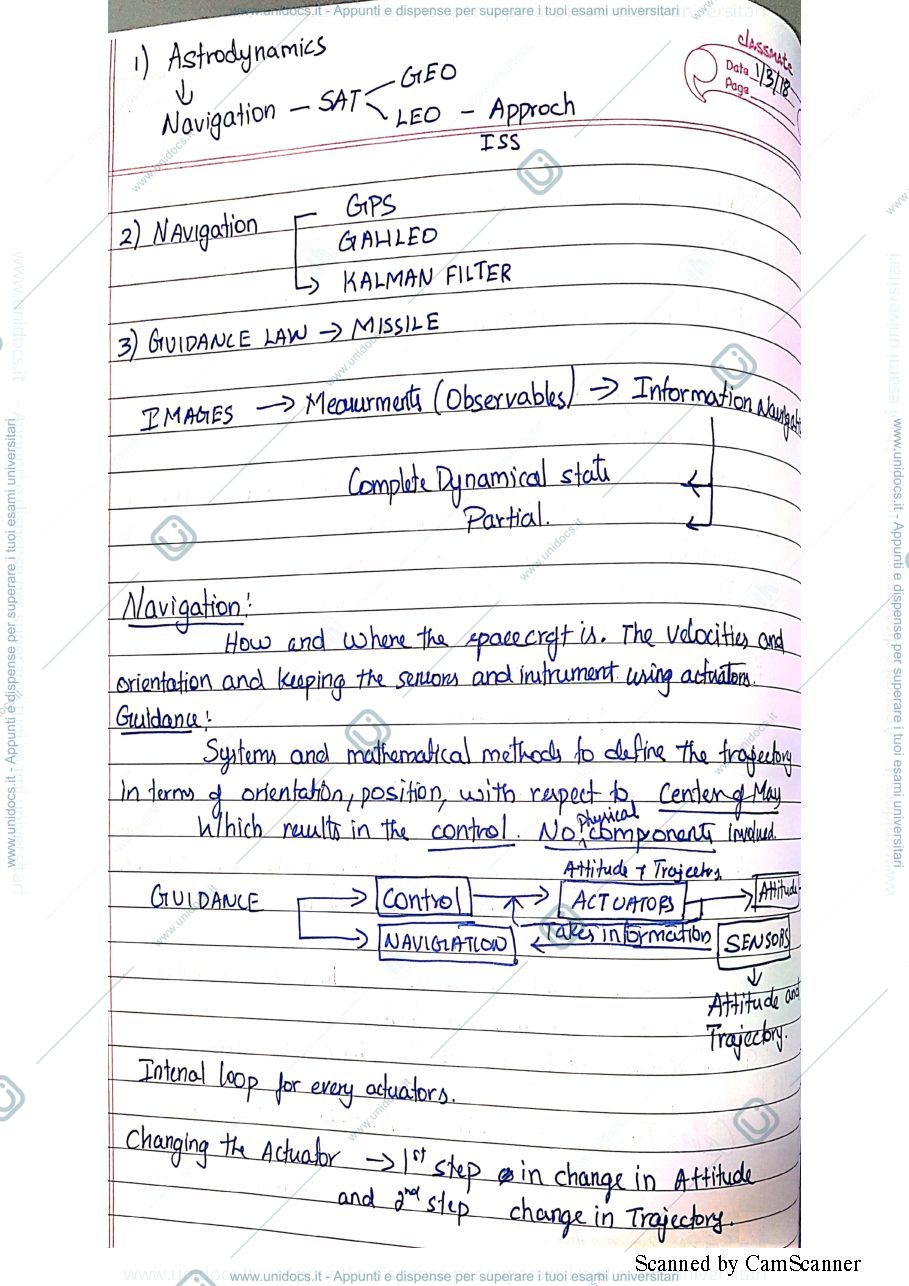 www.unidocs.it - Appunti e dispense per superare i tuoi esami universitari
classmate
Date 1/3/18
Page
1) Astrodynamics
↓
Navigation – SAT GEO
LEO – Approch
ISS
2) NAvigation GPS
GALILEO
KALMAN FILTER
3) GUIDANCE LAW → MISSILE
IMAGES → Meaurments (Observables) → Information Navigati
Complete Dynamical state
Partial.
Navigation:
How and where the spacecrft is. The velocities and
orientation and keeping the sensors and instrument using actuators.
Guidance:
Systems and mathematical methods to define the trajectory
in terms of orientation, position, with respect to Center of Mass
Which results in the control. No physical components involved.
Attitude + Trajectory
GUIDANCE → Control → ACTUATORS → Attitude
→ NAVIGATION ← Takes information SENSORS
↓
Attitude and
Trajectory.
Intenal loop for every actuators.
Changing the Actuator → 1st step in change in Attitude
and 2nd step change in Trajectory.
Scanned by CamScanner
www.unidocs.it - Appunti e dispense per superare i tuoi esami universitari